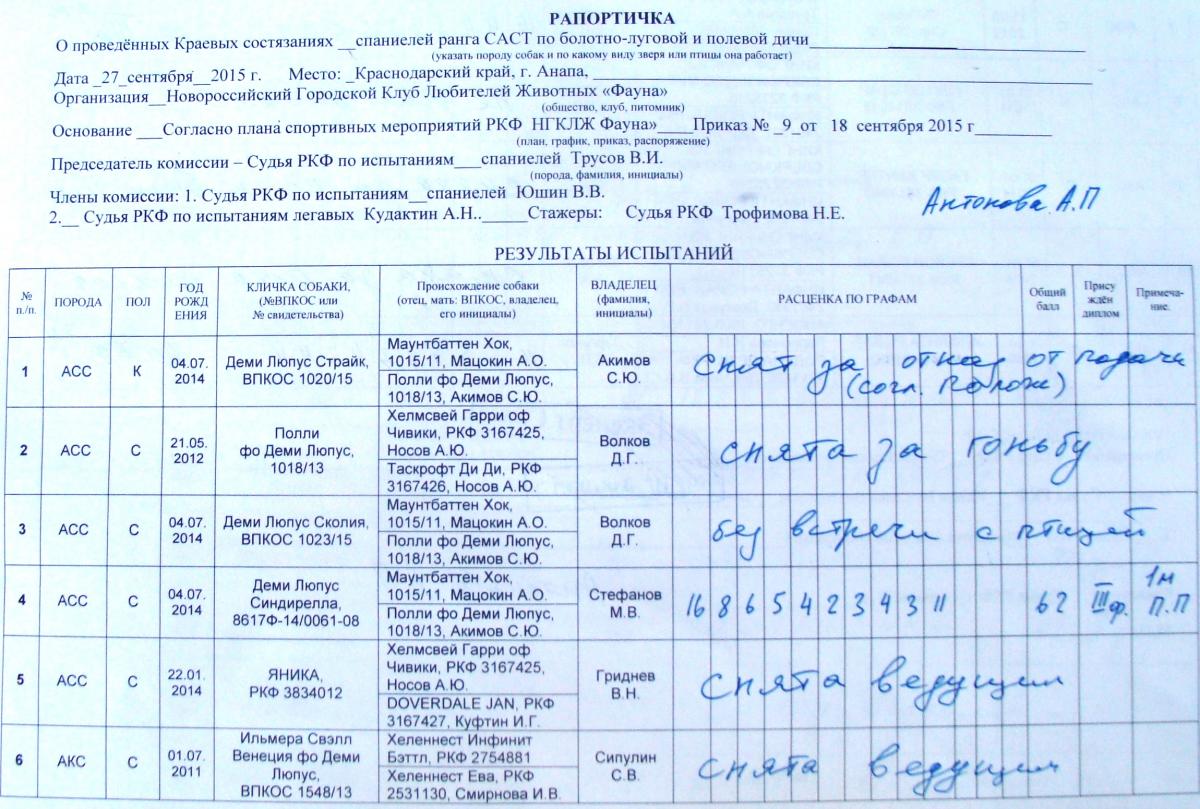 РАПОРТИЧКА
О проведённых Краевых состязаниях __спаниелей ранга САСТ по болотно-луговой и полевой дичи
(указать породу собак и по какому виду зверя или птицы она работает)
Дата _27_сентября__2015 г. Место: _Краснодарский край, г. Анапа,
Организация__Новороссийский Городской Клуб Любителей Животных «Фауна»
(общество, клуб, питомник)
Основание ___Согласно плана спортивных мероприятий РКФ НГКЛЖ Фауна»____Приказ № _9_от 18 сентября 2015 г
(план, график, приказ, распоряжение)
Председатель комиссии – Судья РКФ по испытаниям___спаниелей Трусов В.И.
(порода, фамилия, инициалы)
Члены комиссии: 1. Судья РКФ по испытаниям__спаниелей Юшин В.В.
2.__ Судья РКФ по испытаниям легавых Кудактин А.Н..______Стажеры: Судья РКФ Трофимова Н.Е. Антонова А.П
РЕЗУЛЬТАТЫ ИСПЫТАНИЙ
№ п./п. ПОРОДА ПОЛ ГОД РОЖДЕНИЯ КЛИЧКА СОБАКИ, (№ВПКОС или № свидетельства) Происхождение собаки (отец, мать: ВПКОС, владелец, его инициалы) ВЛАДЕЛЕЦ (фамилия, инициалы) РАСЦЕНКА ПО ГРАФАМ Общий балл Присуждён диплом Примечание.
1 АСС К 04.07. 2014 Деми Люпус Страйк, ВПКОС 1020/15 Маунтбаттен Хок, 1015/11, Мацокин А.О. Полли фо Деми Люпус, 1018/13, Акимов С.Ю. Акимов С.Ю. Снят за отказ от подачи (согл. полож)
2 АСС С 21.05. 2012 Полли фо Деми Люпус, 1018/13 Хелмсвей Гарри оф Чивики, РКФ 3167425, Носов А.Ю. Таскрофт Ди Ди, РКФ 3167426, Носов А.Ю. Волков Д.Г. снята за гоньбу
3 АСС С 04.07. 2014 Деми Люпус Сколия, ВПКОС 1023/15 Маунтбаттен Хок, 1015/11, Мацокин А.О. Полли фо Деми Люпус, 1018/13, Акимов С.Ю. Волков Д.Г. без встречи с птицей
4 АСС С 04.07. 2014 Деми Люпус Синдирелла, 8617Ф-14/0061-08 Маунтбаттен Хок, 1015/11, Мацокин А.О. Полли фо Деми Люпус, 1018/13, Акимов С.Ю. Стефанов М.В. 16 8 6 5 4 2 3 4 3 11 62 III ф. 1м П.П
5 АСС С 22.01. 2014 ЯНИКА, РКФ 3834012 Хелмсвей Гарри оф Чивики, РКФ 3167425, Носов А.Ю. DOVERDALE JAN, РКФ 3167427, Куфтин И.Г. Гриднев В.Н. Снята ведущим
6 АКС С 01.07. 2011 Ильмера Свэлл Венеция фо Деми Люпус, ВПКОС 1548/13 Хеленнест Инфинит Бэттл, РКФ 2754881 Хеленнест Ева, РКФ 2531130, Смирнова И.В. Сипулин С.В. снята ведущим